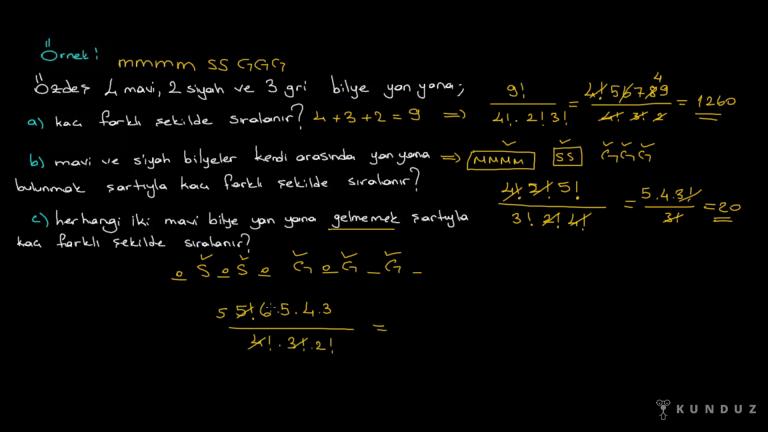 Örnek:
mmmm SS GGG
Özdeş 4 mavi, 2 siyah ve 3 gri bilye yan yana;
a) kaç farklı şekilde sıralanır? 4+3+2=9 ⇒ 9! / 4!.2!3! = 4!.56789 4 / 4! 3! 2 = 1260
b) mavi ve siyah bilyeler kendi arasında yan yana ⇒ MMMM SS GGG
bulunmak şartıyla kaç farklı şekilde sıralanır? 4! 2! 5! / 3! 2! 4! = 5.4.3! / 3! = 20
c) herhangi iki mavi bilye yan yana gelmemek şartıyla
kaç farklı şekilde sıralanır?
_ S _ S _ G _ G _ G _
5 5! 6.5.4.3 / 4!.3!.2! =
KUNDUZ